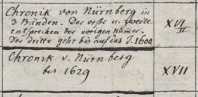 Chronik von Nürnberg in
3 Bänden. Das erste u. zweite XVI
entsprechen der vorigen Numer. II
Das dritte geht bis auf das J. 1600
Chronik v. Nürnberg
bis 1629 XVII